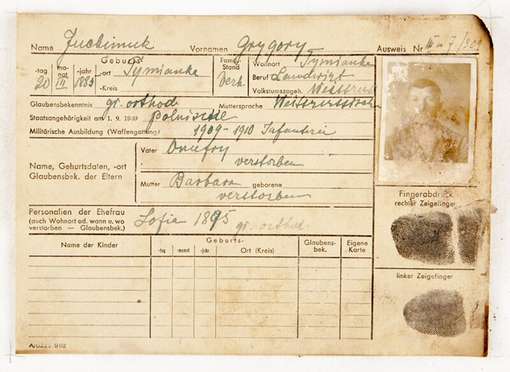 Name Juchimiuk Vornamen Grygory Ausweis Nr
Geburts- -tag 20 mo-nat III -jahr 1885 -ort Tymianka -Kreis
Fam.-Stand Verh. Wohnort Tymianka
Beruf Landwirt
Volkszugeh.
Glaubensbekenntnis gr. orthod Muttersprache
Staatsangehörigkeit am 1. 9. 1939
Militärische Ausbildung (Waffengattung) 1909-1910 Infanterie
Name, Geburtsdaten, -ort
Glaubensbek. der Eltern
Vater Onufry
verstorben
Mutter Barbara geborene
verstorben
Personalien der Ehefrau
(auch Wohnort od. wann u. wo
verstorben — Glaubensbek.)
Sofia 1895 gr. orthod.
Fingerabdruck
rechter Zeigefinger
linker Zeigefinger
Name der Kinder
Geburts-
-tag -monat -jahr Ort (Kreis)
Glaubens-
bek.
Eigene
Karte